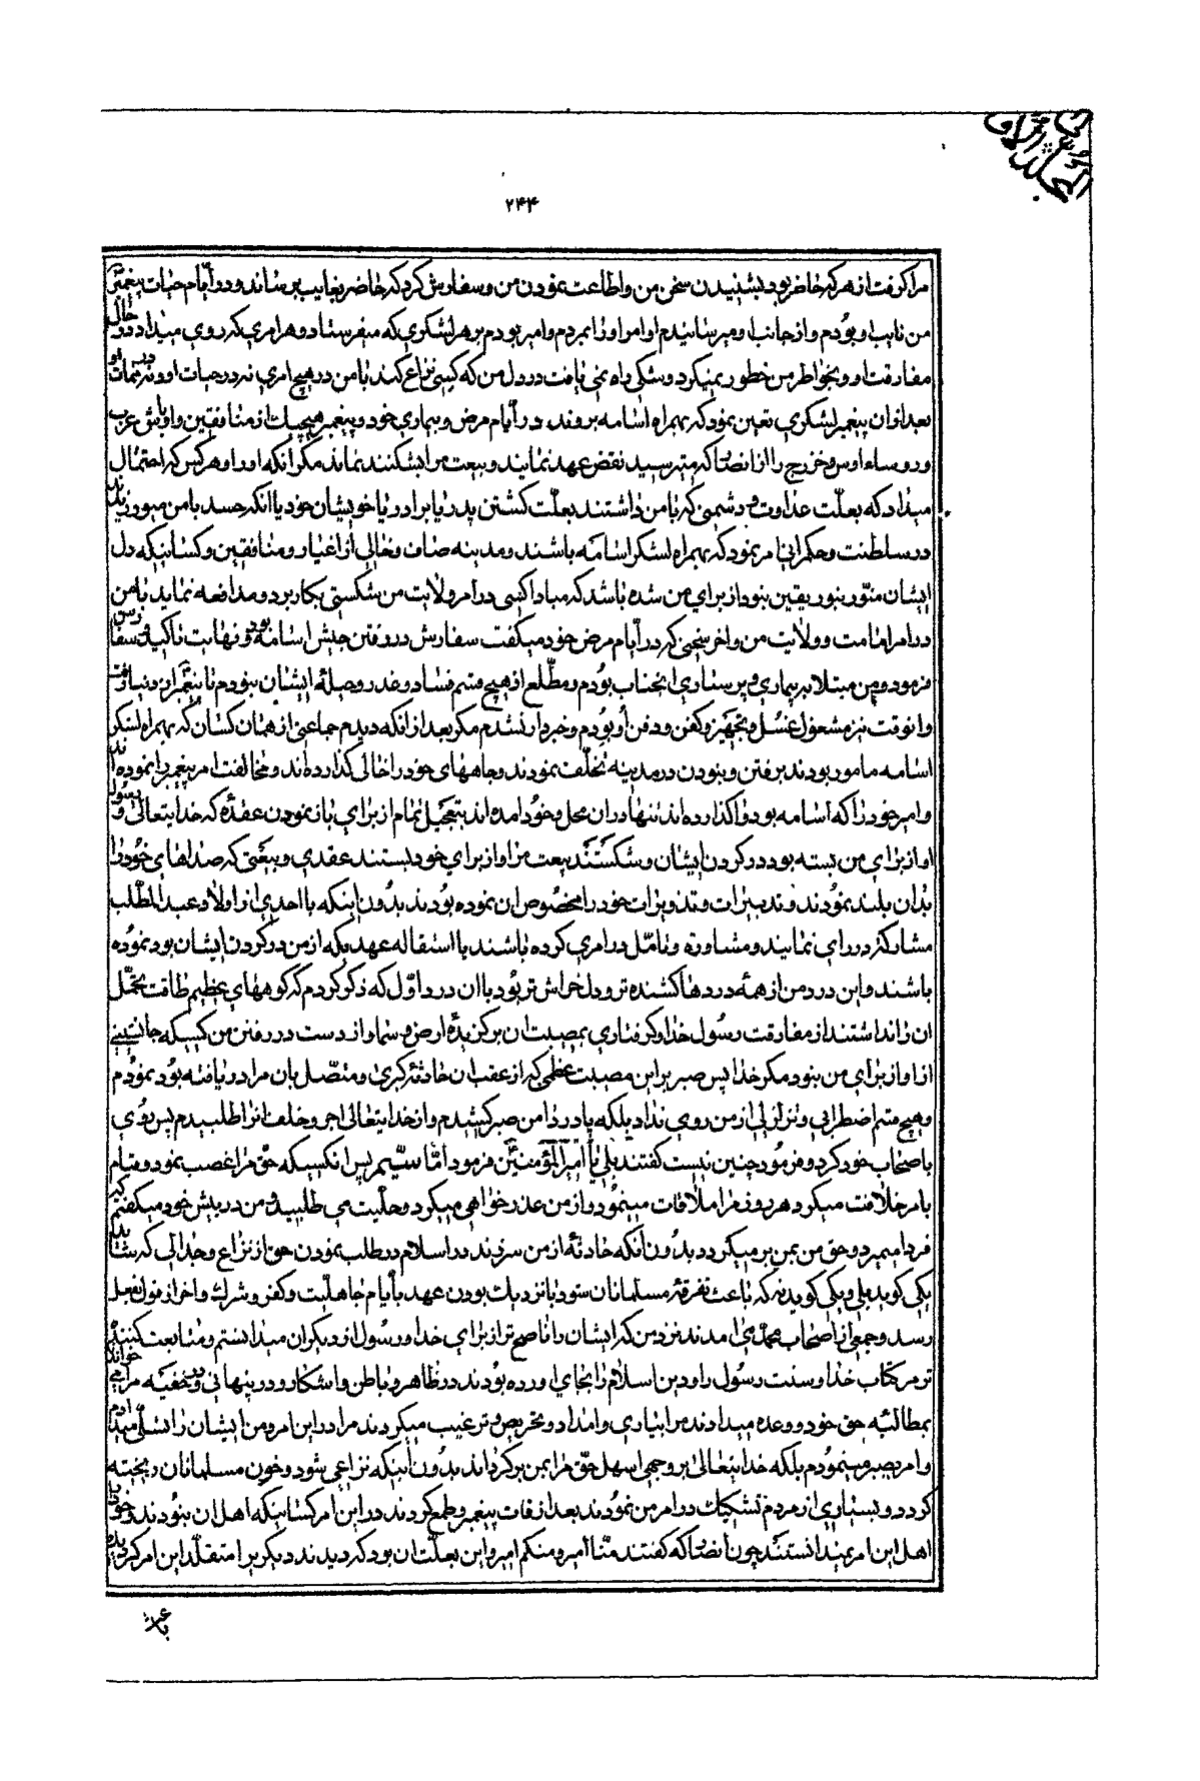 المجلد الاول
۲۴۴
مرا گرفت از هر که حاضر بود بشنیدن سخن من و اطاعت نمودن من و سفارش کرد که حاضر بغایب برساند و در ایام حیات پیغمبر
من نایب او بودم و از جانب او میرسانیدم اوامر او را بمردم و امیر بودم بر هر لشگری که میفرستاد و هر امری که روی میداد در حال
مفارقت او و بخواطر من خطور نمیکرد و شکی راه نمی یافت در دل من که کسی نزاع کند با من در هیچ امری نه در حیات او و نه در ممات او
بعد از ان پیغمبر لشکری تعیین نمود که بهمراه اسامه بروند در ایام مرض و بیماری خود و پیغمبر هیچیک از منافقین و اوباش عرب
و روساء اوس و خزرج را از انصار که میترسید نقض عهد نمایند و بیعت مرا بشکنند نماند مگر انکه او را و هر کس که احتمال
میداد که بعلت عداوت و دشمنی که با من داشتند بعلت کشتن پدر یا برادر یا خویشان خود یا انکه حسد با من میورزیدند
در سلطنت و حکمرانی امر نمود که بهمراه لشکر اسامه باشند و مدینه صاف و خالی از اغیار و منافقین و کسانیکه دل
ایشان منور بنور یقین نبود از برای من شده باشد که مبادا کسی در امر ولایت من شکستی بکار برد و مدافعه نماید با من
در امر امامت و ولایت من و اخر سخنی که در ایام مرض خود میگفت سفارش در رفتن جیش اسامه بود و نهایت تاکید و سفارش
فرمود و من مبتلا به بیماری و پرستاری انجناب بودم و مطلع از هیچ قسم فساد و غدر و حیله ایشان نبودم تا پیغمبر از دنیا رفت
و انوقت نیز مشغول غسل و تجهیز و کفن و دفن او بودم و خبردار نشدم مگر بعد از انکه دیدم جماعتی از همان کسان که بهمراه لشکر
اسامه مامور بودند برفتن و نبودن در مدینه تخلف نمودند و جاههای خود را خالی گذارده اند و مخالفت امر پیغمبر را نموده اند
و امیر خود را که اسامه بود واگذارده اند تنها در ان محل و خود امده اند بتعجیل تمام از برای باز نمودن عقدهٔ که خدایتعالی و رسول
او از برای من بسته بود در گردن ایشان و شکستند بیعت مرا و از برای خود بستند عقدی و بیعتی که صداهای خود را
بدان بلند نمودند و تدبیرات و تزویرات خود را مخصوص ان نموده بودند بدون اینکه با احدی از اولاد عبدالمطلب
مشارکتی در رای نمایند و مشاوره و تامل در امری کرده باشند یا استقاله عهدیکه از من در گردن ایشان بود نموده
باشند و این درد من از همه دردها کشنده تر و دل خراش تر بود با ان درد اول که ذکر کردم که کوههای عظیم طاقت تحمل
ان را نداشتند از مفارقت رسول خدا و گرفتاری بمصیبت ان برگزیدهٔ ارض و سما و از دست در رفتن من کسیکه جانشینی
از او از برای من نبود مگر خدا پس صبر بر این مصیبت عظمی که از عقب ان حادثه کبری و متصل بان مرا دریافته بود نمودم
و هیچ قسم اضطرابی و تزلزلی از من روی نداد بلکه پا در دامن صبر کشیدم و از خدایتعالی اجر و خلف انرا طلبیدم پس روی
باصحاب خود کرد و فرمود چنین نیست گفتند بلی یا امیر المؤمنین فرمود اما سیم پس انکسیکه حق مرا غصب نمود و قیام
بامر خلافت میکرد هر روز مرا ملاقات مینمود و از من عذرخواهی میکرد و حلیت می طلبید و من در پیش خود میگفتم که
فردا میمیرد و حق من بمن بر میگردد بدون آنکه حادثهٔ از من سرزند در اسلام در طلب نمودن حق از نزاع و جدالی که شاید
یکی گوید بلی و یکی گوید نه که باعث تفرقهٔ مسلمانان شود با نزدیک بودن عهد بایام جاهلیت و کفر و شرک و اخر از قول بفعل
رسد و جمعی از اصحاب محمد می امدند نزد من که ایشان را ناصح تر از برای خدا و رسول از دیگران میدانستم و متابعت کننده
تر مر کتاب خدا و سنت رسول را و دین اسلام را بجای اورده بودند در ظاهر و باطن و اشکار و در پنهانی و خفیه مرا می خواندند
بمطالبه حق خود و وعده میدادند مرا بیاری و امداد و تحریص و ترغیب میکردند مرا در این امر و من ایشان را تسلی میدادم
و امر بصبر مینمودم بلکه خدایتعالی بر وجهی اسهل حق مرا بمن برگرداند بدون اینکه نزاعی شود و خون مسلمانان ریخته
گردد و بسیاری از مردم تشکیک در امر من نمودند بعد از وفات پیغمبر و طمع کردند در این امر کسانیکه اهل ان نبودند و خود را
اهل این امر نمیدانستند چون انصار که گفتند منا امیر و منکم امیر و این بعلت ان بود که دیدند دیگریرا متقلد این امر گردیده
باعث